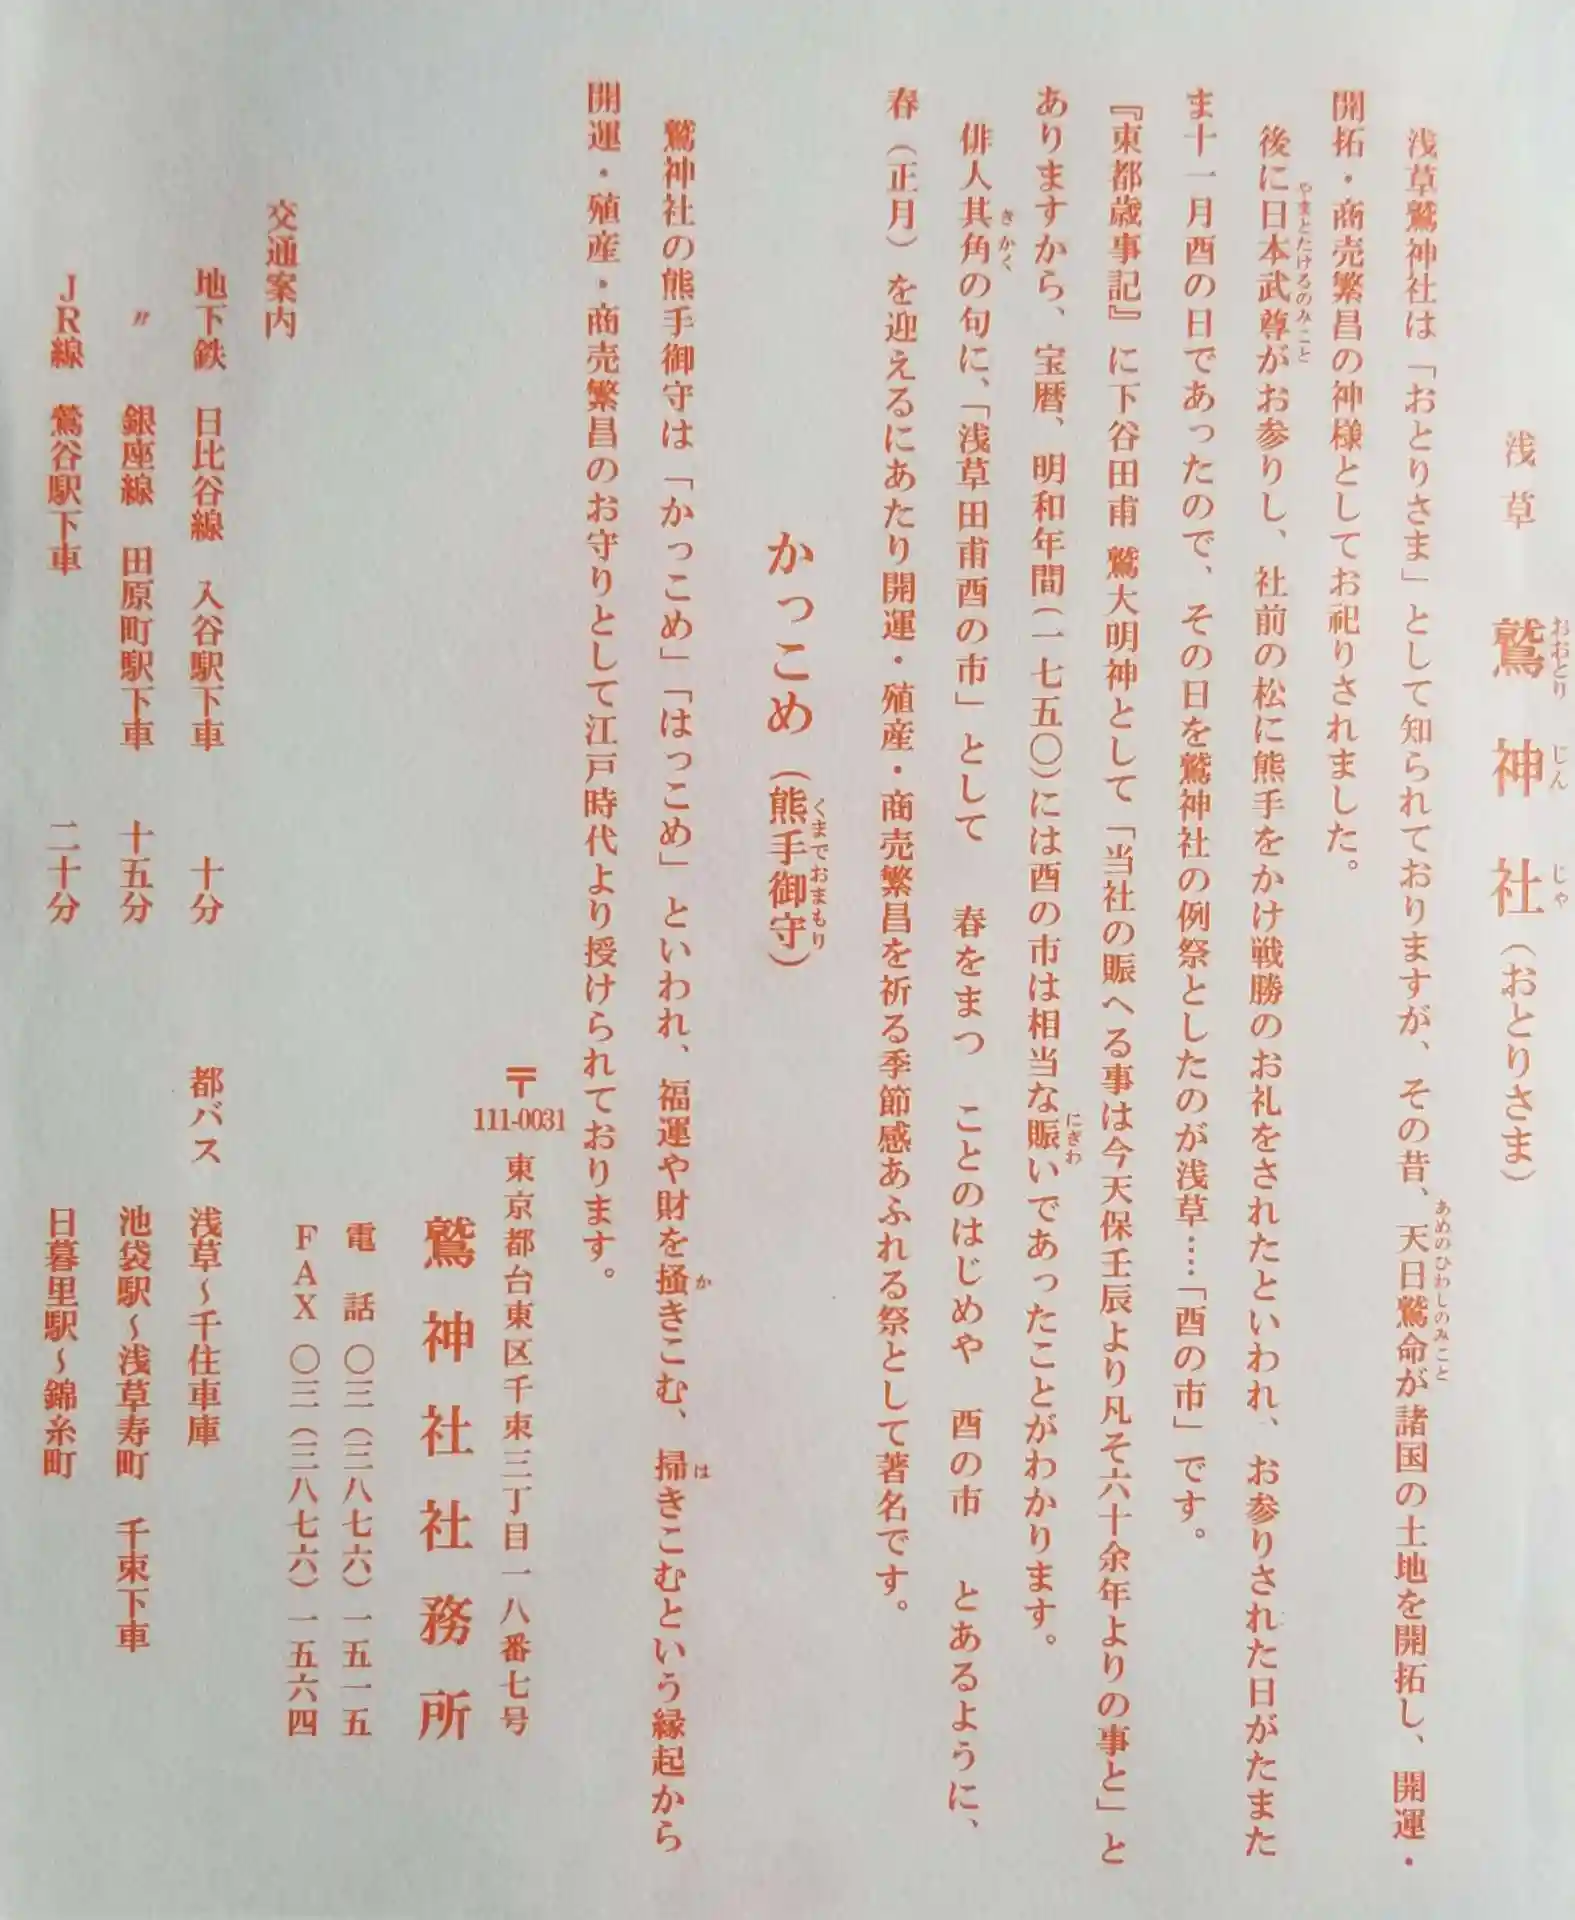 浅草 鷲神社（おとりさま）
おおとり じん じゃ
浅草鷲神社は「おとりさま」として知られておりますが、その昔、天日鷲命が諸国の土地を開拓し、開運・
あめのひわしのみこと
開拓・商売繁昌の神様としてお祀りされました。
後に日本武尊がお参りし、社前の松に熊手をかけ戦勝のお礼をされたといわれ、お参りされた日がたまた
やまとたけるのみこと
ま十一月酉の日であったので、その日を鷲神社の例祭としたのが浅草…「酉の市」です。
『東都歳事記』に下谷田甫 鷲大明神として「当社の賑へる事は今天保壬辰より凡そ六十余年よりの事と」と
ありますから、宝暦、明和年間（一七五〇）には酉の市は相当な賑いであったことがわかります。
にぎわ
俳人其角の句に、「浅草田甫酉の市」として 春をまつ ことのはじめや 酉の市 とあるように、
きかく
春（正月）を迎えるにあたり開運・殖産・商売繁昌を祈る季節感あふれる祭として著名です。
かっこめ（熊手御守）
くまでおまもり
鷲神社の熊手御守は「かっこめ」「はっこめ」といわれ、福運や財を掻きこむ、掃きこむという縁起から
か は
開運・殖産・商売繁昌のお守りとして江戸時代より授けられております。
〒111-0031 東京都台東区千束三丁目一八番七号
鷲神社社務所
電話 〇三（三八七六）一五一五
FAX 〇三（三八七六）一五六四
交通案内
地下鉄 日比谷線 入谷駅下車 十分 都バス 浅草～千住車庫
〃 銀座線 田原町駅下車 十五分 池袋駅～浅草寿町 千束下車
JR線 鶯谷駅下車 二十分 日暮里駅～錦糸町